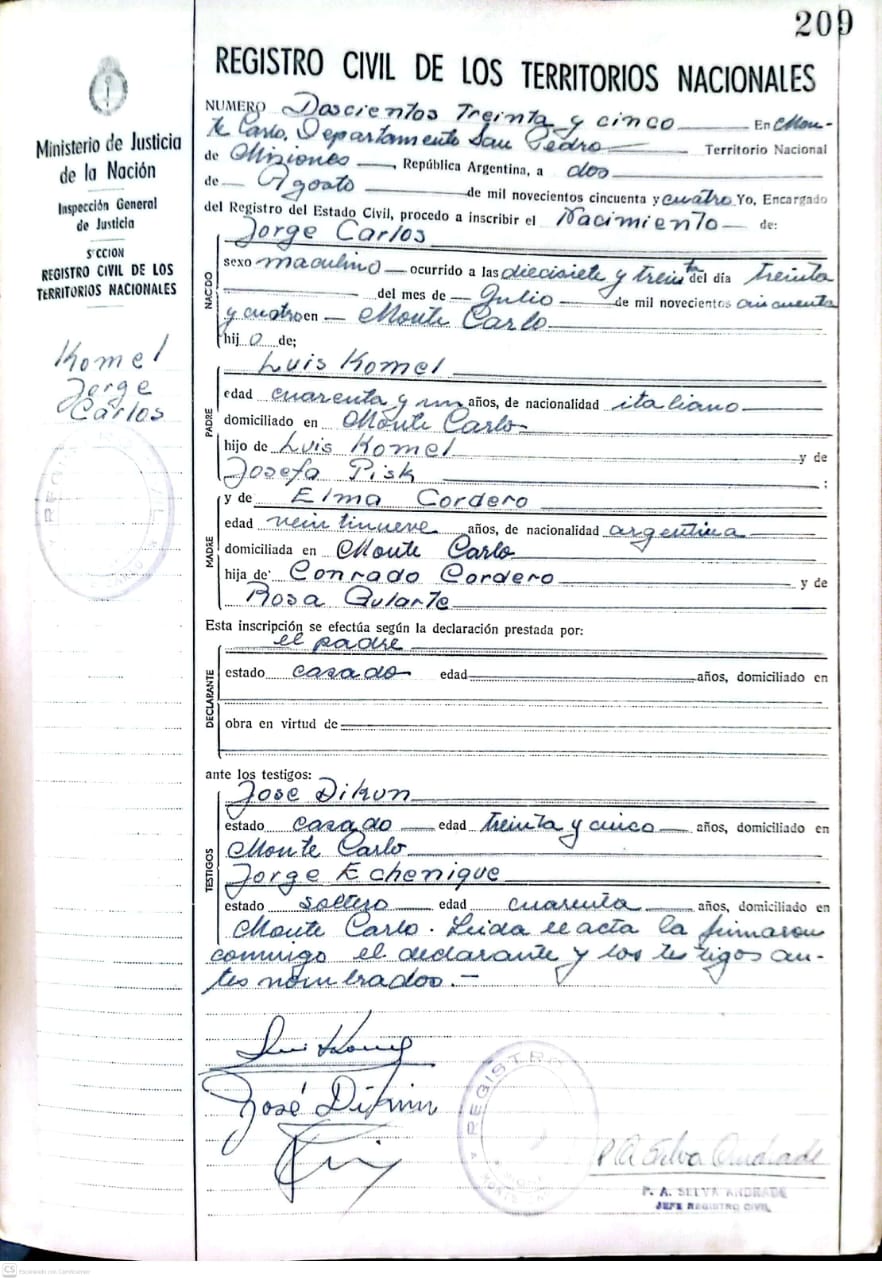 209
REGISTRO CIVIL DE LOS TERRITORIOS NACIONALES
Ministerio de Justicia
de la Nación
Inspección General
de Justicia
SECCION
REGISTRO CIVIL DE LOS
TERRITORIOS NACIONALES
Komel
Jorge
Carlos
NUMERO Doscientos Treinta y cinco En Mon-
te Carlo, Departamento San Pedro Territorio Nacional
de Misiones, República Argentina, a dos
de Agosto de mil novecientos cincuenta y cuatro Yo, Encargado
del Registro del Estado Civil, procedo a inscribir el Nacimiento de:
NACIDO
Jorge Carlos
sexo masculino ocurrido a las diecisiete y treinta del día treinta
del mes de Julio de mil novecientos cincuenta
y cuatro en Monte Carlo
hijo de;
PADRE
Luis Komel
edad cuarenta y un años, de nacionalidad italiano
domiciliado en Monte Carlo
hijo de Luis Komel y de
Josefa Pisk ;
MADRE
y de Elma Cordero
edad veintinueve años, de nacionalidad argentina
domiciliada en Monte Carlo
hija de Conrado Cordero y de
Rosa Gularte
Esta inscripción se efectúa según la declaración prestada por:
DECLARANTE
el padre
estado casado edad años, domiciliado en
obra en virtud de
ante los testigos:
TESTIGOS
Jose Dikun
estado casado edad treinta y cinco años, domiciliado en
Monte Carlo
Jorge Echenique
estado soltero edad cuarenta años, domiciliado en
Monte Carlo. Leida el acta la firmaron
conmigo el declarante y los testigos an-
tes nombrados.-
Luis Komel
José Dikun
REGISTR
P A Selva Andrade
P. A. SELVA ANDRADE
JEFE REGISTRO CIVIL
CS Escaneado con CamScanner